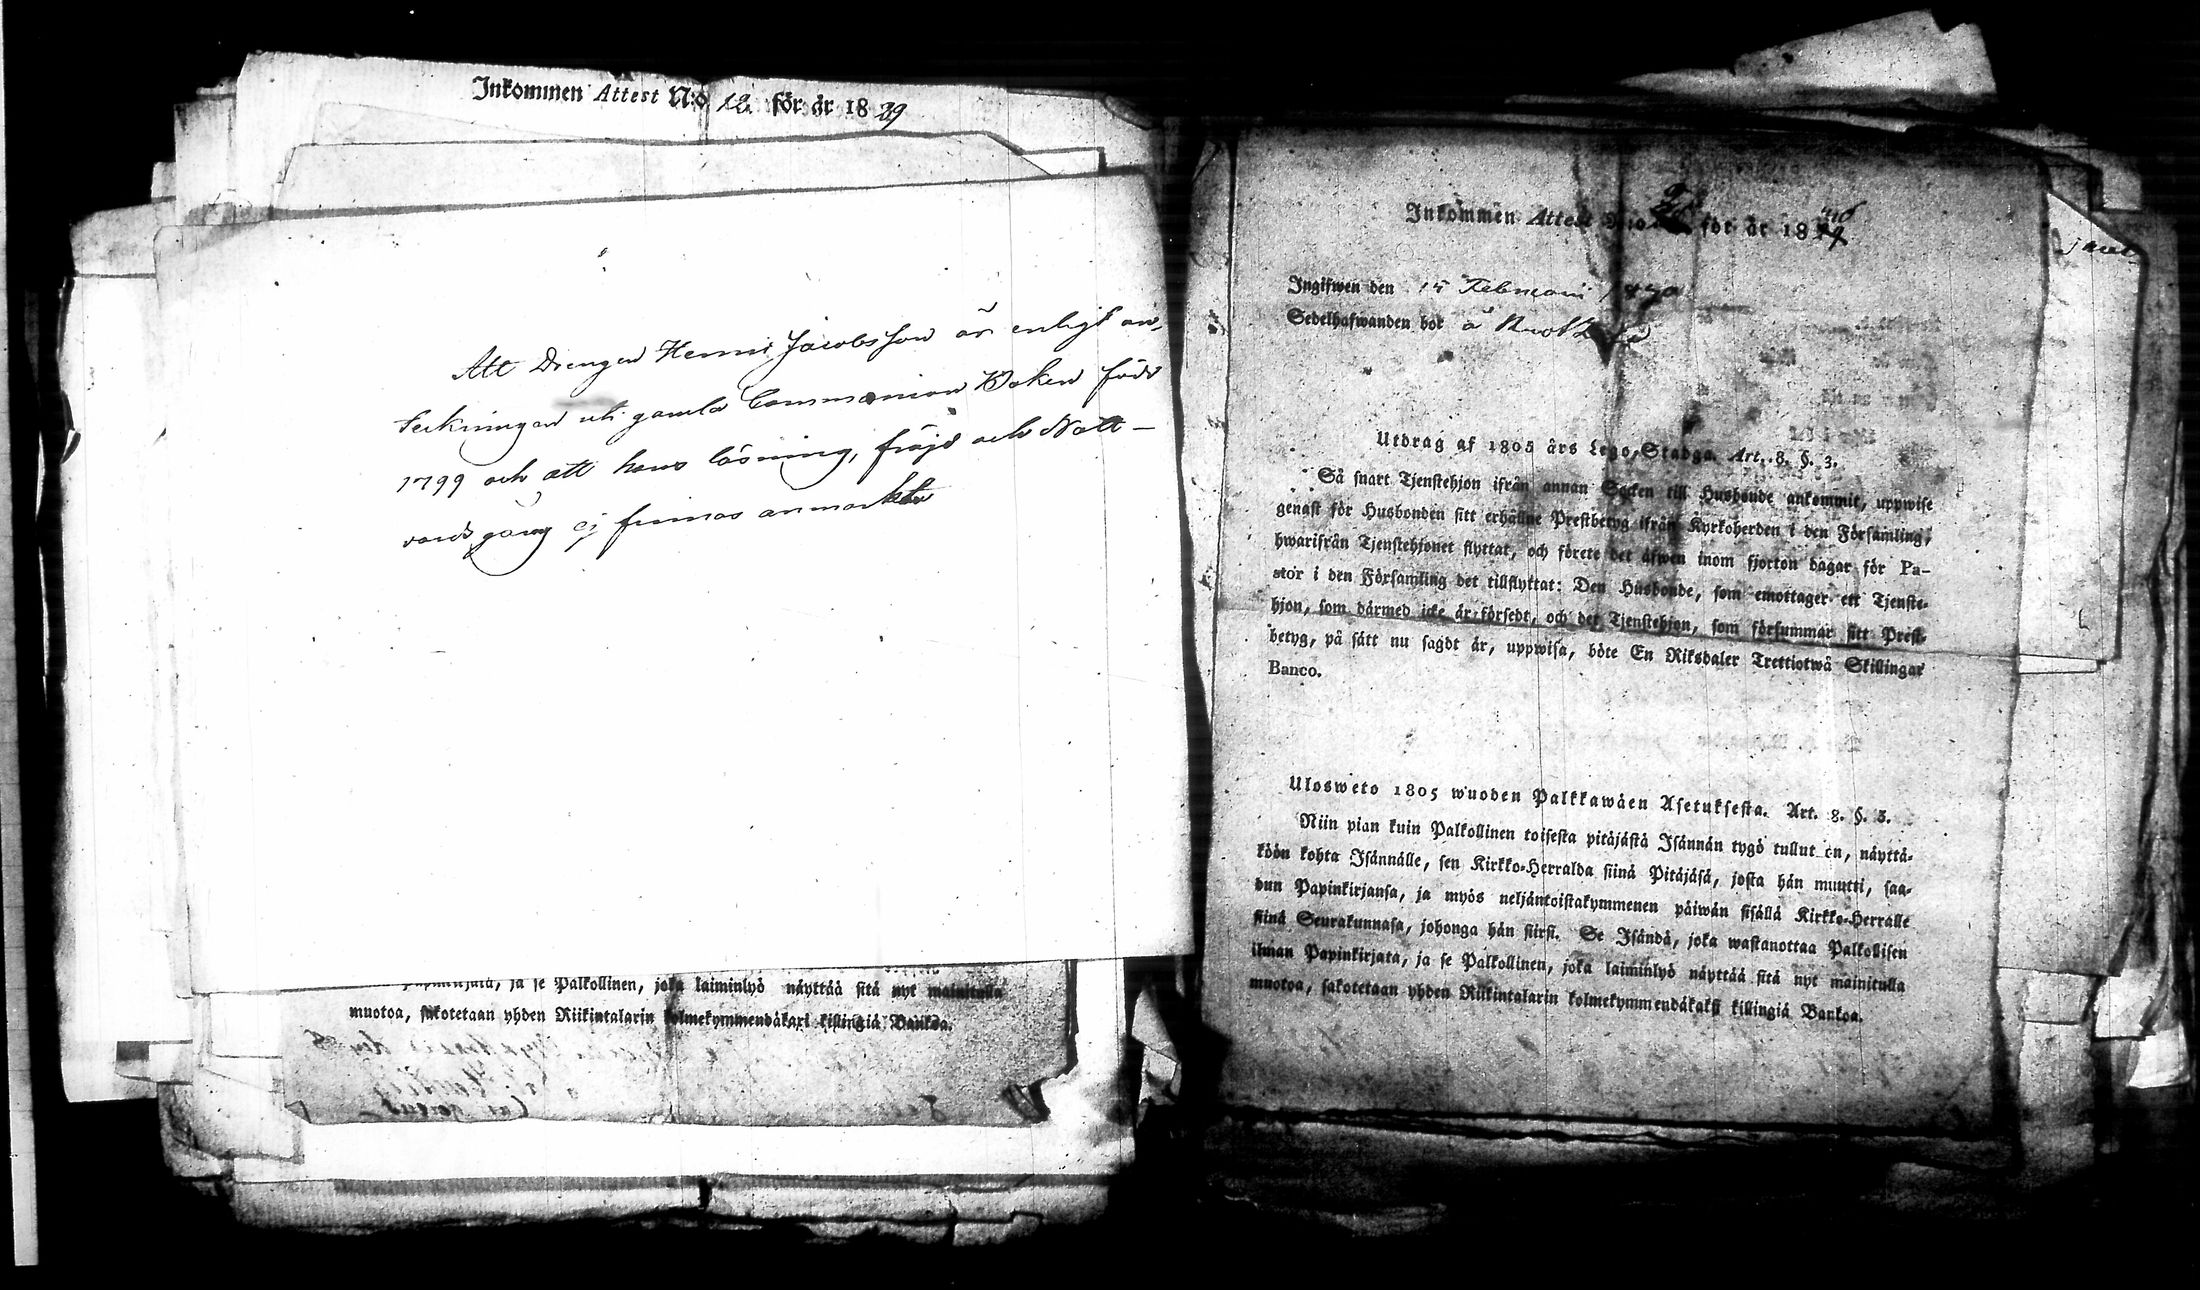 Inkommen Attest N:o 12. för år 1839
Att Drengen Henric Jacobsson är enligt an,
teckningen uti gamla Communion Boken född
1799 och att hans läsning, fräjd och Natt-
vards gång ej finnas anmärkte
ja se Palkollinen, joka laiminlyö näyttää sitä nyt mainitulla
muotoa, sakotetaan yhden Riikintalarin kolmekymmendäkaxi killingiä Bankoa.
Inkommen Attest N:o för år 18
Ingifwen den 15 Februari 1840
Sedelhafwanden bor å
Utdrag af 1805 års Lego-Stadga. Art. 8. §. 3.
Så snart Tjenstehjon ifrån annan Socken till Husbonde ankommit, uppwise
genast för Husbonden sitt erhållne Prestbetyg ifrån Kyrkoherden i den Församling,
hwarifrån Tjenstehjonet flyttat, och förete det äfwen inom fjorton dagar för Pa-
stor i den Församling det tillflyttat: Den Husbonde, som emottager ett Tjenste-
hjon, som därmed icke är försedt, och det Tjenstehjon, som försummar sitt Prest-
betyg, på sätt nu sagdt är, uppwisa, böte En Riksdaler Trettiotwå Skillingar
Banco.
Ulosweto 1805 wuoden Palkkawäen Asetuksesta. Art. 8. §. 3.
Niin pian kuin Palkollinen toisesta pitäjästä Isännän tygö tullut on, näyttä-
köön kohta Isännälle, sen Kirkko-Herralda siinä Pitäjäsä, josta hän muutti, saa-
dun Papinkirjansa, ja myös neljäntoistakymmenen päiwän sisällä Kirkko-Herralle
siinä Seurakunnasa, johonga hän siirsi. Se Isändä, joka wastanottaa Palkollisen
ilman Papinkirjata, ja se Palkollinen, joka laiminlyö näyttää sitä nyt mainitulla
muotoa, sakotetaan yhden Riikintalarin kolmekymmendäkaksi killingiä Bankoa.